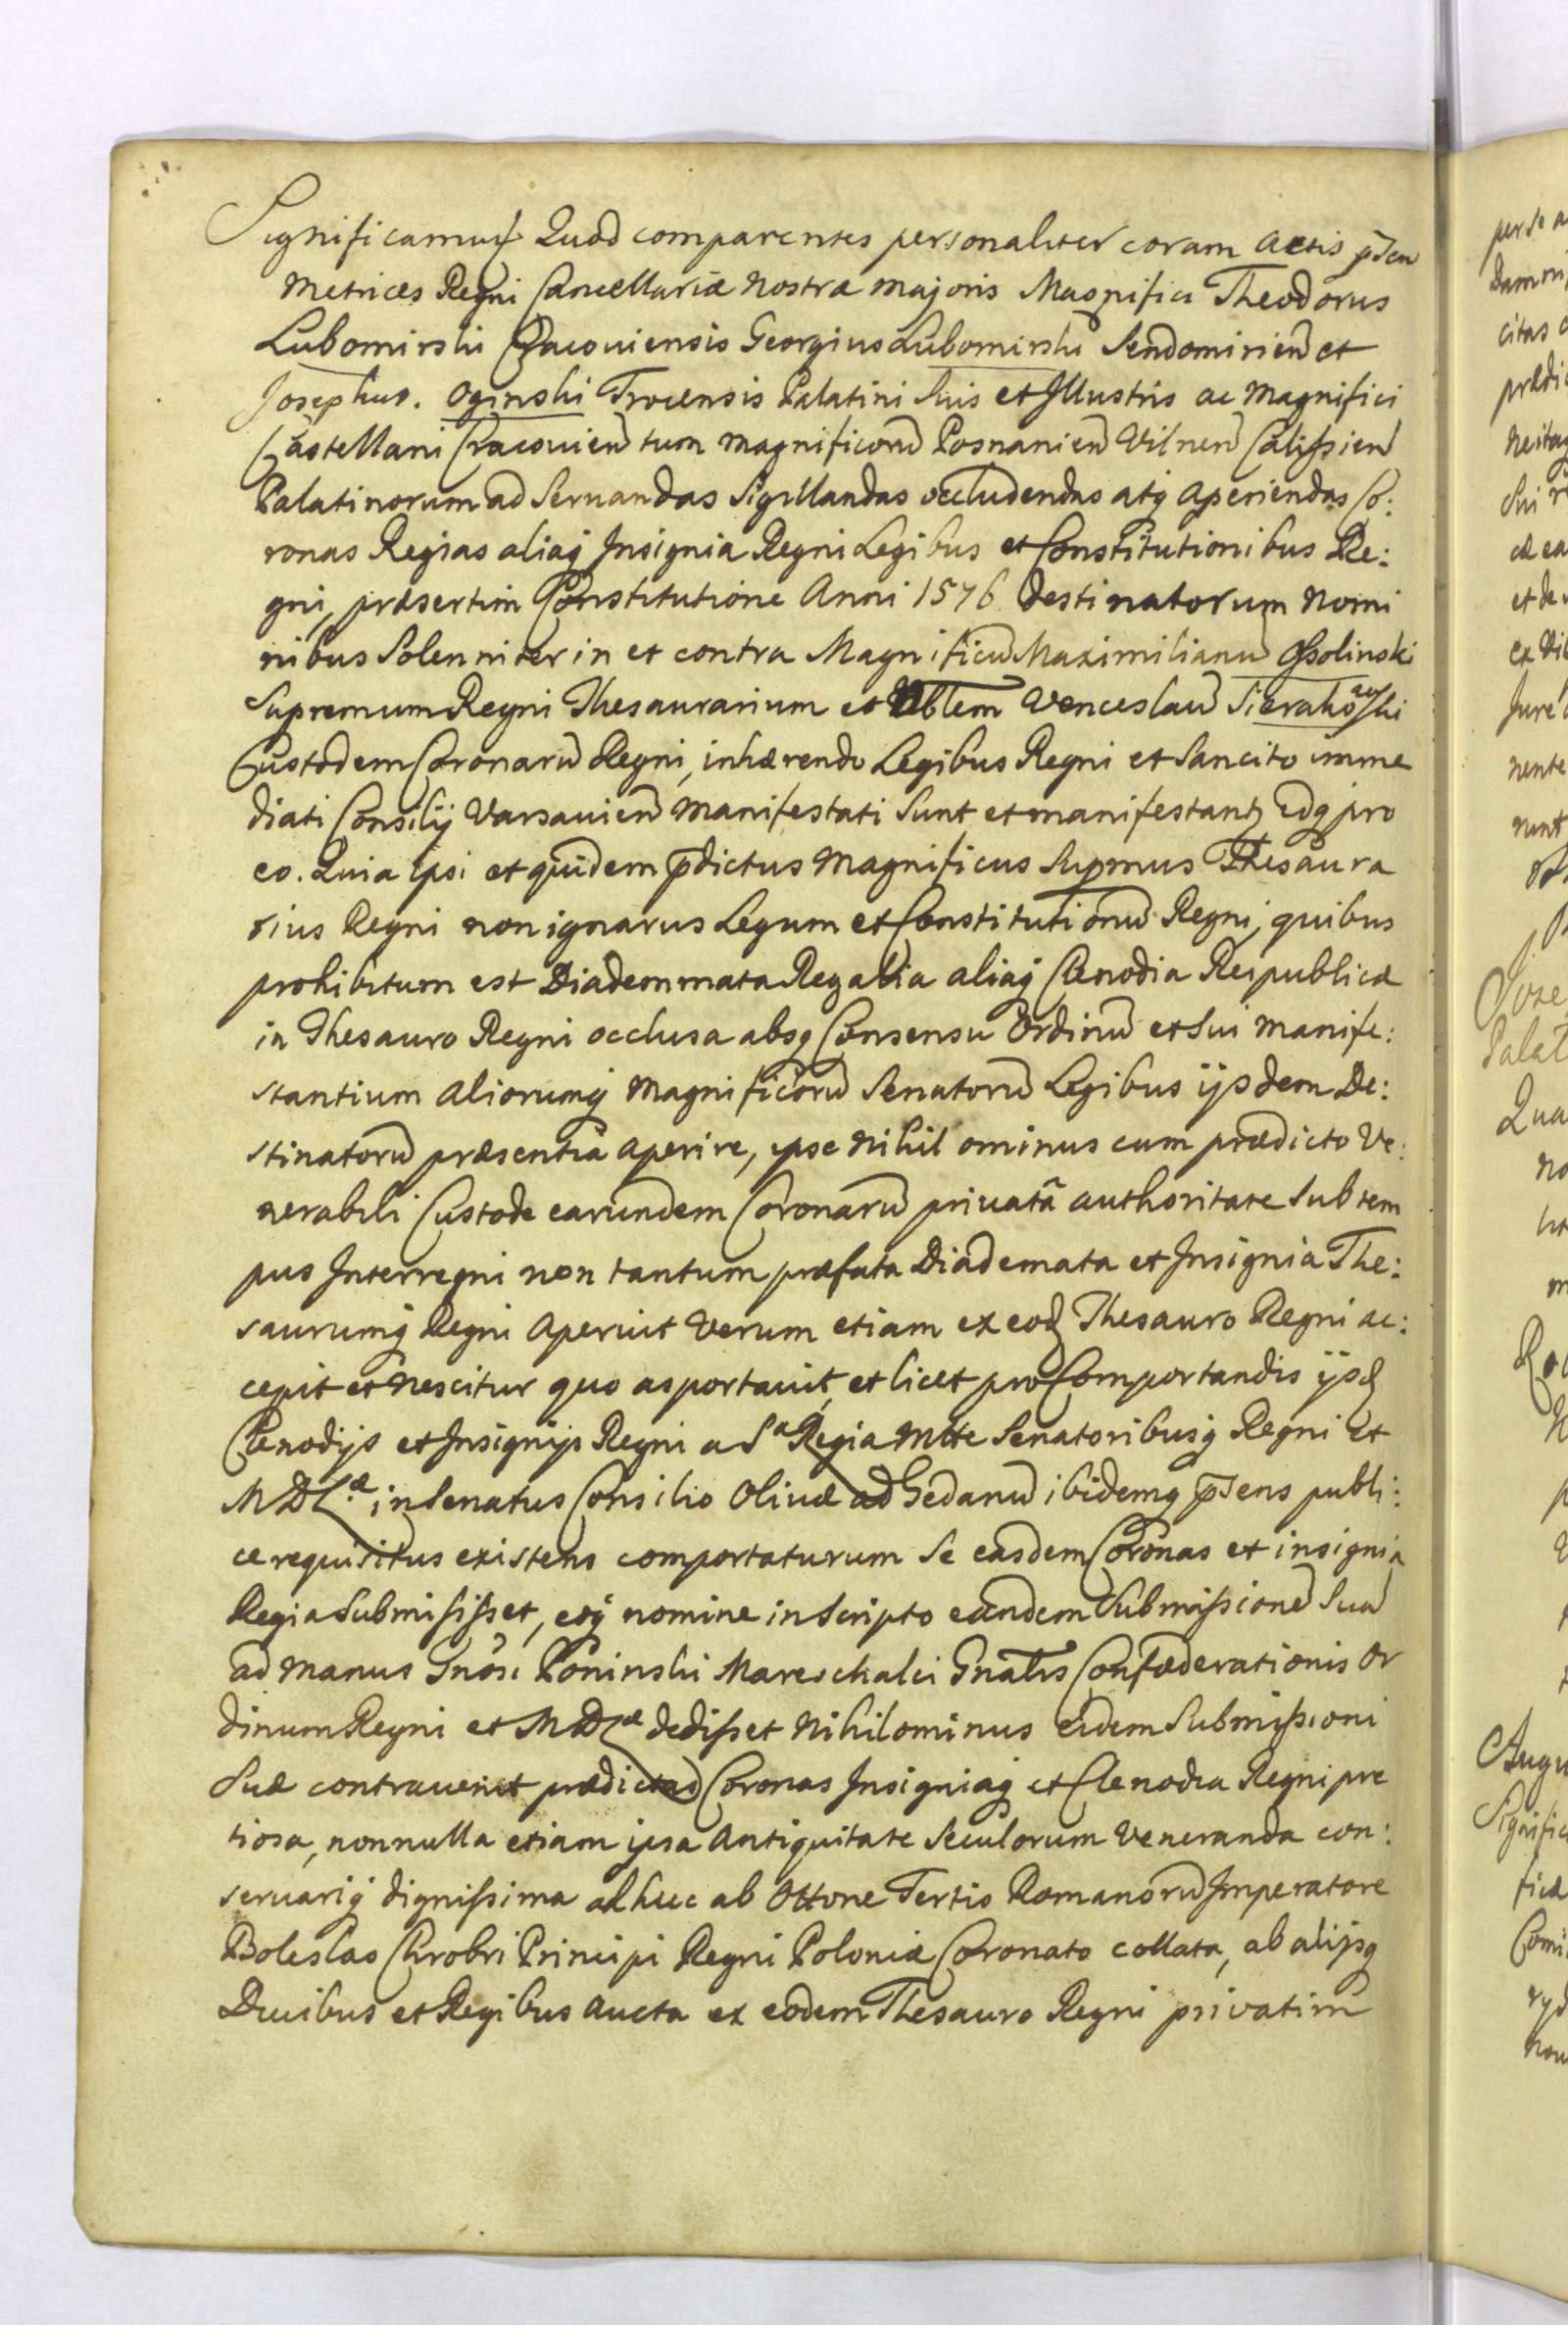 Significamus Quod comparentes personaliter coram Actis p̄sen
Metrices Regni Cancellariæ Nostræ Majoris Magnifici Theodorus
Lubomirski Cracoviensis Georgius Lubomirski Sendomirien̄ et
Josephus. Oginski Trocensis Palatini Suis et Illustris ac Magnifici
Castellani Cracouien̄ tum Magnificorū Posnanien̄ Vilnen̄ Calissien̄
Palatinorum ad Seruandas Sigillandas occludendas atq; Aperiendas Co:
ronas Regias aliaq; Insignia Regni Legibus et Constitutionibus Re:
gni, præsertim Constitutione Anni 1576 destinatorum Nomi
nibus Solenniter in et contra Magnificū Maximilianū Ossolinski
Supremum Regni Thesaurarium et Vblem Venceslaū Sierakowski
Custodem Coronarū Regni, inhærendo Legibus Regni et Sancito imme
diati Consilij Varsauien̄ Manifestati Sunt et manifestantʒ Idq; pro
eo. Quia ipsi et quidem p̄dictus Magnificus Supmus Thesaura
rius Regni non ignarus Legum et Constitutionū Regni, quibus
prohibitum est Diademmata Regalia aliaq; Clenodia Reipublicæ
in Thesauro Regni occlusa absq; Consensu Ordinū et Sui Manife:
stantium Aliorumq; Magnificorū Senatorū Legibus ijsdem De:
stinatorū præsentia Aperire, ipse Nihil ominus cum prædicto Ve:
nerabili Custode earundem Coronarū priuatâ authoritate Sub tem
pus Interregni non tantum præfata Diademata et Insignia The:
saurumq; Regni Aperuit Verum etiam ex eod̄ Thesauro Regni ac:
cepit et Nescitur quo asportauit, et licet pro Comportandis ijsd̄
Clenodijs et Insignijs Regni a Sᵃ Regia Mtte Senatoribusq; Regni Et
MDLᵃᵉ in Senatus Consilio Oliuæ ad Gedanū ibidemq; p̄sens publi:
ce requisitus existens comportaturum Se easdem Coronas et insignia
Regia Submisisset, eoq; nomine in Scripto eandem Submissionē Suā
ad Manus Gnosi Poninski Mareschalci Gnalis Confæderationis Or
dinum Regni et MDLᵃᵉ dedisset Nihilominus eidem Submissioni
Suæ contrauenit prædictas Coronas Insigniaq; et Clenodia Regni pre
tiosa, nonnulla etiam ipsa Antiquitate Seculorum Veneranda con:
seruariq; dignissima adhuc ab Ottone Tertio Romanorū Imperatore
Boleslao Chrobri Principi Regni Poloniæ Coronato collata, ab alijsq;
Ducibus et Regibus Aucta ex eodem Thesauro Regni privatim